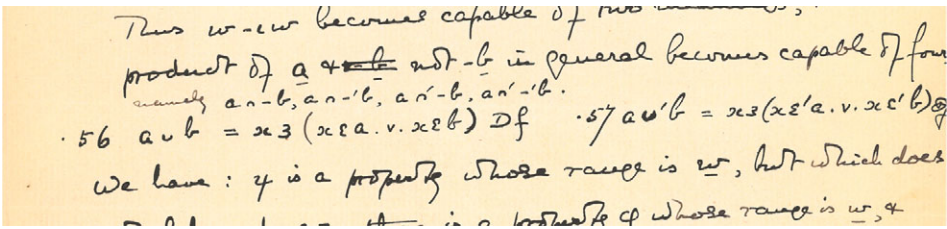 Thus w-εw becomes capable of two
product of a & not-b in general becomes capable of four
namely a∩-b, a∩-'b, a∩'-b, a∩'-'b.
·56 a∪b = x∍(xεa.v.xεb) Df ·57 a∪'b = x∍(xε'a.v.xε'b)
We have: ψ is a property whose range is w, but which does
is a property φ whose range is w, &